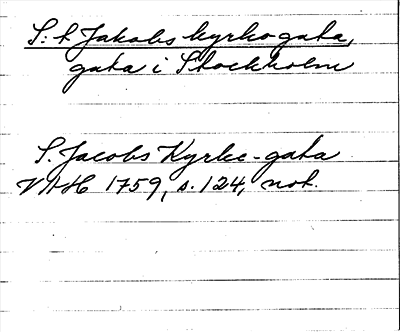 S:t Jakobs kyrkogata,
gata i Stockholm
S. Jacobs Kyrke-gata
VAH 1759, s. 124, not.